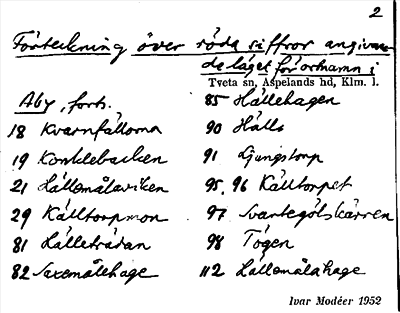 2
Förteckning över röda siffror angivan-
de läget för ortnamn i
Tveta sn, Aspelands hd, Klm. l.
Åby, forts.
18 Kvarnfällorna
19 Konklebacken
21 Hällemålaviken
29 Källtorpmon
81 Lälleträdan
82 Saxemålehage
85 Hällehagen
90 Hälls
91 Ljungstorp
95, 96 Källtorpet
97 Svartegölskärren
98 Tögen
112 Lällemålahage
Ivar Modéer 1952